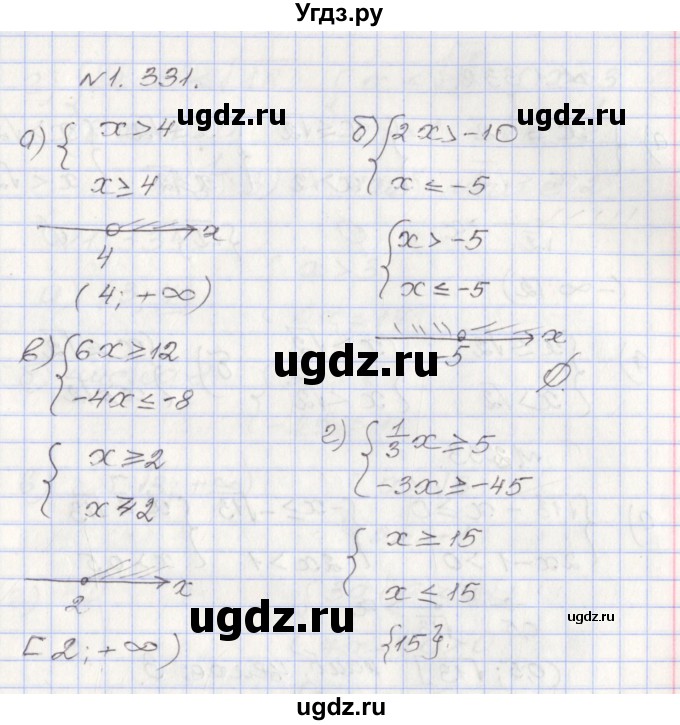 Угдз.ру
№1. 331.
а) { x > 4
x ≥ 4
ugdz.ru
4 x
(4; +∞)
б) { 2x > -10
x ≤ -5
ugdz.ru
{ x > -5
x ≤ -5
-5 x
∅
в) { 6x ≥ 12
-4x ≤ -8
ugdz.ru
{ x ≥ 2
x ≥ 2
2 x
[2; +∞)
г) { 1/3 x ≥ 5
-3x ≥ -45
{ x ≥ 15
x ≤ 15
{15}.
ugdz.ru
ugdz.ru
ugdz.ru